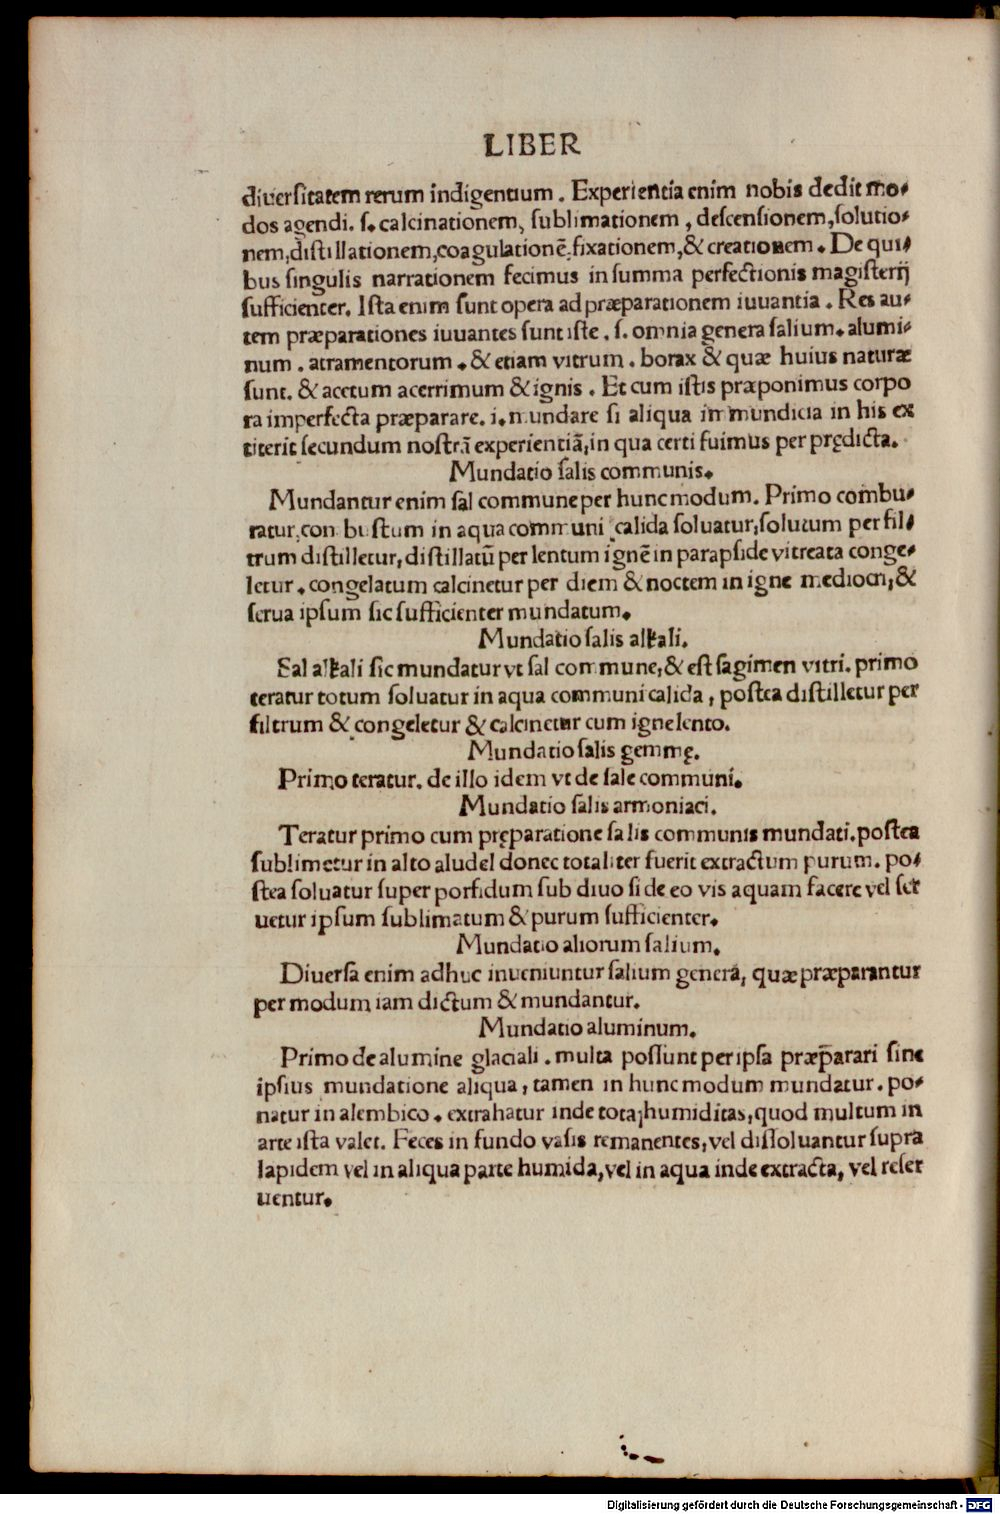 LIBER
diuersitatem rerum indigentium . Experientia enim nobis dedit mo-
dos agendi. s. calcinationem, sublimationem , descensionem,solutio-
nem,distillationem,coagulationē.fixationem,& creationem . De qui-
bus singulis narrationem fecimus in summa perfectionis magisterij
sufficienter. Ista enim sunt opera ad præparationem iuuantia . Res au-
tem præparationes iuuantes sunt iste . s. omnia genera salium. alumi-
num . atramentorum . & etiam vitrum . borax & quæ huius naturæ
sunt. & acetum acerrimum & ignis . Et cum istis præponimus corpo
ra imperfecta præparare. i. mundare si aliqua immundicia in his ex
titerit secundum nostrā experientiā,in qua certi fuimus per prędicta.
Mundatio salis communis.
Mundantur enim sal commune per hunc modum. Primo combu-
ratur.conbustum in aqua communi calida soluatur,solutum per fil-
trum distilletur,distillatū per lentum ignē in parapside vitreata conge-
letur . congelatum calcinetur per diem & noctem in igne mediocri,&
serua ipsum sic sufficienter mundatum.
Mundatio salis alkali.
Sal alkali sic mundatur vt sal commune,& est sagimen vitri. primo
teratur totum soluatur in aqua communi calida , postea distilletur per
filtrum & congeletur & calcinetur cum igne lento.
Mundatio salis gemmę.
Primo teratur. de illo idem vt de sale communi.
Mundatio salis armoniaci.
Teratur primo cum pręparatione salis communis mundati.postea
sublimetur in alto aludel donec totaliter fuerit extractum purum. po-
stea soluatur super porfidum sub diuo si de eo vis aquam facere vel ser
uetur ipsum sublimatum & purum sufficienter.
Mundatio aliorum salium.
Diuersa enim adhuc inueniuntur salium genera, quæ præparantur
per modum iam dictum & mundantur.
Mundatio aluminum.
Primo de alumine glaciali . multa possunt per ipsa præparari sine
ipsius mundatione aliqua , tamen in hunc modum mundatur . po-
natur in alembico . extrahatur inde tota humiditas,quod multum in
arte ista valet. Feces in fundo vasis remanentes,vel dissoluantur supra
lapidem vel in aliqua parte humida,vel in aqua inde extracta, vel reser
uentur.
Digitalisierung gefördert durch die Deutsche Forschungsgemeinschaft - DFG